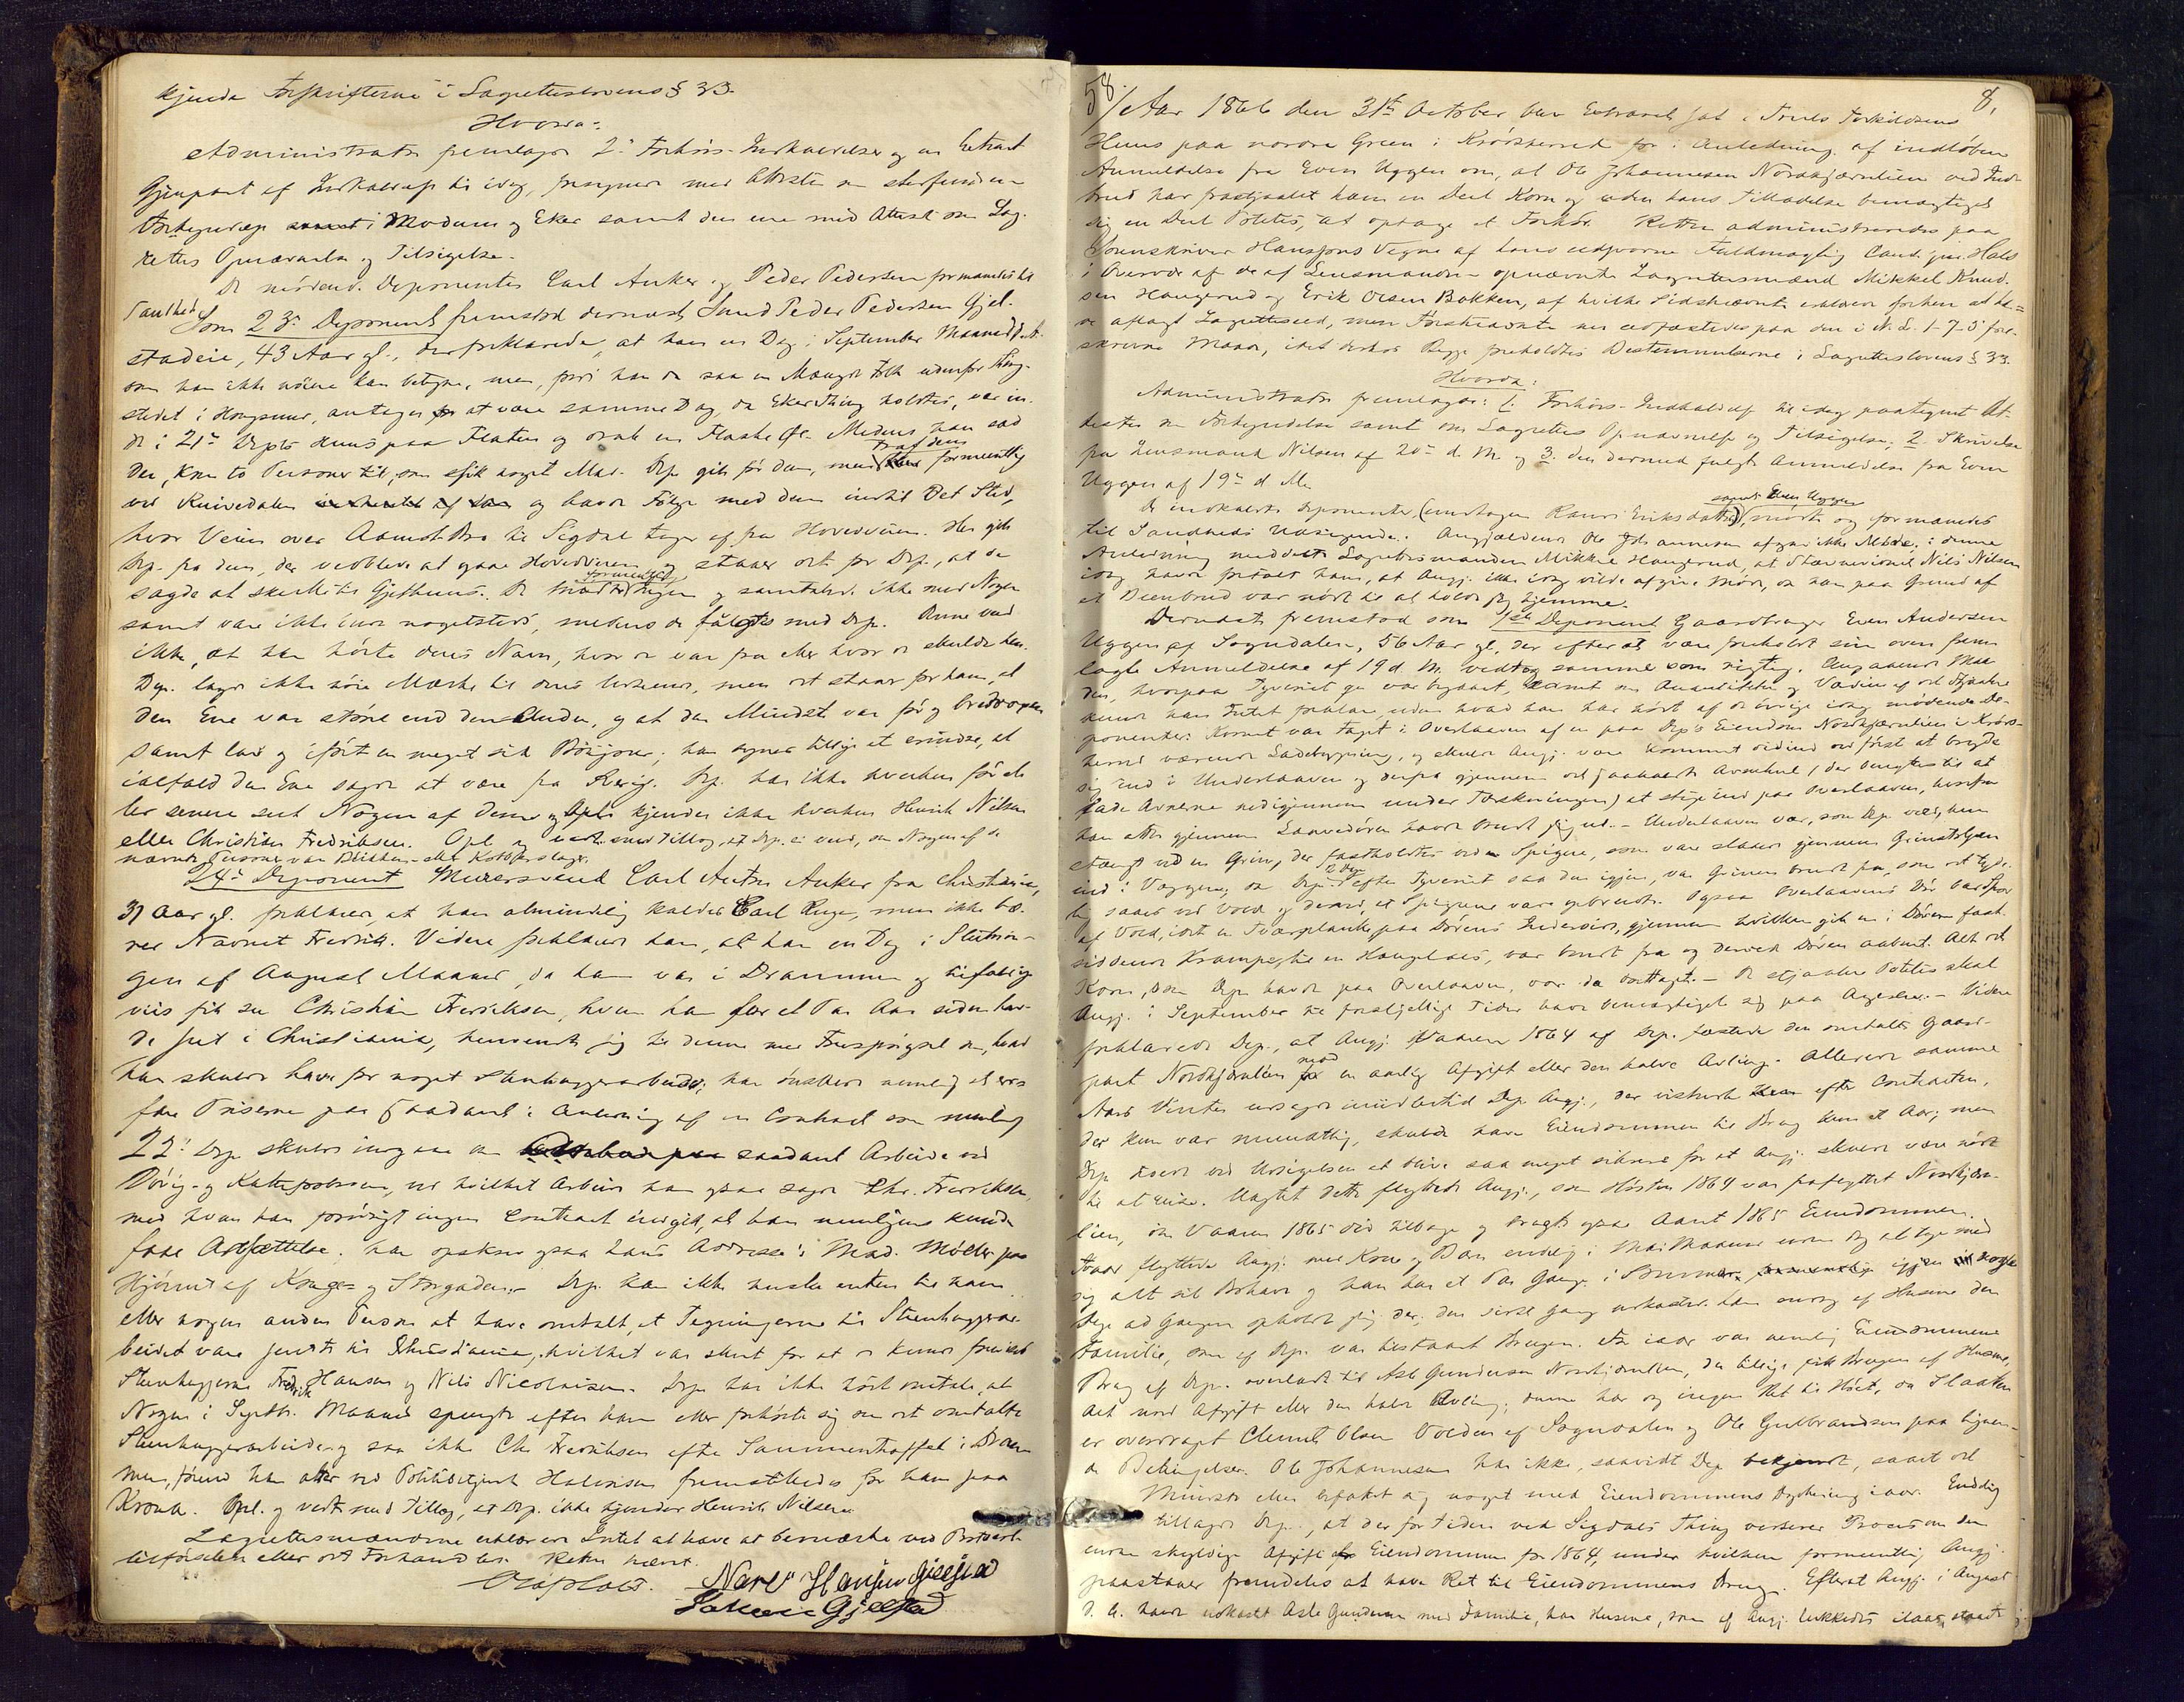 kjende Forskrifterne i Lagretteslovens § 33.
Hvorda:
Administrator fremlagde 2de Forhørs-Indkaldelser og en Extract
Gjenpart af Indkaldelse til idag, forsynede med Attester om stedfunden
Forkyndelse i Modum og Eker samt den ene med Attest om Lag-
rettes Opnævnelse og Tilsigelse.
De mødende Deponenter Carl Anker og Peder Pedersen formanedes til
Sandhed
Som 23de Deponent fremstod dernæst Smed Peder Pedersen Gjel-
stadeie, 43 Aar gl., der forklarede, at han en Dag i September Maaned d. A.
som han ikke nøiere kan betegne, men, fordi han da saa en Mængde Folk udenfor Thing-
stedet i Hougsund, antager at være samme Dag, da Eker Thing holdtes, var in-
de i 21de Dep's Huus paa Flaten og drak en Flaske Øl. Medens han sad
der, kom to Personer til, som fik noget Mad. Dep. gik før dem, men traf dem formentlig
ved Knivedalen og havde Følge med dem indtil det Sted,
hvor Veien over Aamot Bro til Sigdal tager af fra Hovedveien. Her gik
Dep. fra dem, der vedbleve at gaae Hovedveien og staaer det for Dep., at de
sagde at skulle til Gjethuus. De mødte formentlig Ingen og samtalede ikke med Nogen
samt vare ikke inde nogetsteds, medens de fulgtes med Dep. Denne ved
ikke, at han hørte deres Navn, hvor de var fra eller hvor de skulde hen.
Dep. lagde ikke nøie Mærke til deres Udseende, men det staaer for ham, at
den Ene var større end den Anden, og at den Mindste var før og bredvoxen
samt lav og iført en meget slidt Bøxer; han synes tillige at erindre, at
ialfald den Ene sagde at være fra Kværg. Dep. har ikke hverken før el-
ler senere seet Nogen af dem og kjender ikke hverken Henrik Nilsen
eller Christian Fredriksen. Opl. og vedt. med Tillæg, at Dep. ei veed, om Nogen af de
nævnte Personer var Blikken- eller Kobberslager.
24de Deponent Murersvend Carl Anker fra Christiania,
37 Aar gl. forklarer, at han almindelig kaldes Carl Ruge, men ikke bæ-
rer Navnet Fredrik. Videre forklarede han, at han en Dag i Slutnin-
gen af August Maaned, da han var i Drammen og tilfældig-
viis fik see Christian Fredriksen, hvem han for et Par Aar siden hav-
de seet i Christiania, henvendte sig til denne med Forespørgsel om, hvad
han skulde have for noget Steenhuggerarbeide; han ønskede nemlig at er-
fare Priserne paa saadant i Anledning af en Contract som nemlig
22de Dep. skulde indgaae om saadant Arbeide ved
Døvig- og Kattefosbroen, ved hvilket Arbeide han ogsaa sagde Chr. Fredriksen,
med hvem han forøvrigt ingen Contract indgik, at han muligens kunde
faae Ansættelse; han opskrev ogsaa hans Addresse: Mad. Møller paa
Hjørnet af Konges og Storgaden. Dep. kan ikke huske enten til ham
eller nogen anden Person at have omtalt, at Tegningerne til Steenhuggerar-
beidet vare sendte til Christiania, hvilket var skeet for at de kunde forevises
Steenhuggerne Fredrik Hansen og Nils Nicolaisen. Dep. har ikke hørt omtale, at
Nogen i Septbr. Maaned spurgte efter ham eller forhørte sig om det omtalte
Steenhuggerarbeide og saa ikke Chr. Fredriksen efter Sammentræffet i Dram-
men, førend han atter ved Politibetjent Halvorsen fremstilledes for ham paa
Krona. Opl. og vedt. med Tillæg, at Dep. ikke kjender Henrik Nilsen.
Lagrettesmændene erklærede Intet at have at bemærke ved Protocol-
tilførselen eller det Forhandlede. Retten hævet.
Narv Hansen Gjelstad
Gjelstad
58. 8.
Aar 1866 den 31te October blev Extraret sat i Truls Torkildsens
Huus paa nordre Green i Krødsherred for i Anledning af indløben
Anmeldelse fra Even Uggen om, at Ole Johannesen Nordhjærnlien ved Ind-
brud har frastjaalet ham en Deel Korn og uden hans Tilladelse bemægtiget
sig en Deel Potetes, at optage et Forhør. Retten administreredes paa
Sorenskriver Hansens Vegne af hans edsvorne Fuldmægtig Cand. jur. Hals
i Overvær af de af Lensmanden opnævnte Lagrettesmænd Mikkel Knud-
sen Haugerud og Erik Olsen Bakken, af hvilke Sidstnævnte erklærede forhen at ha-
ve aflagt Lagretteseed, mens Førstnævnte nu edfæstedes paa den i N. L. 1-7-3 fore-
skrevne Maade, idet derhos Begge foreholdtes Bestemmelserne i Lagretteslovens § 33.
Hvorda:
Administrator fremlagde: 1. Forhørs-Indkaldelse til idag paategnet At-
tester om Forkyndelse samt om Lagrettes Opnævnelse og Tilsigelse, 2. Skrivelse
fra Lensmand Nilsen af 20de d. M. og 3. den dermed fulgte Anmeldelse fra Even
Uggen af 19de d. M.
De indkaldte Deponenter, (undtagen Randi Eriksdatter) samt Even Uggen, mødte og formanedes
til Sandheds Udsigende. Angjældende Ole Johannesen afgav ikke Møde; i denne
Anledning meddelte Lagrettesmanden Mikkel Haugerud, at Stævnevidnet Nils Nilsen
idag havde fortalt ham, at Angj. ikke idag vilde afgive Møde, da han paa Grund af
et Beenbrud var nødt til at holde sig hjemme.
Dernæst fremstod som 1ste Deponent Gaardbruger Even Andersen
Uggen af Sognedalen, 56 Aar gl., der efterat være foreholdt sin oven frem-
lagte Anmeldelse af 19 d. M. vedtog samme som rigtig. Angaaende Maa-
den, hvorpaa Tyveriet var begaaet, samt om Quantiteten og Værdien af det Stjaalne
kunde han Intet forklare, uden hvad han har hørt af de øvrige idag mødende De-
ponenter. Kornet var taget i Overlaaven af en paa Dep's Eiendom Nordhjærnlien i Krøds-
herred værende Ladebygning, og skulde Angj. være kommet derind ved først at bryde
sig ind i Underlaaven og derfra gjennem det saakaldte Avnehul (der benyttes til at
lade Avnerne nedigjennem under Tærskningen) at stige ind paa Overlaaven, hvorfra
han atter gjennem Laavedøren havde brudt sig ud. – Underlaaven var, som Dep. veed, kun
stængt ved en Grind, der fastholdtes ved Spigere, som vare slaaede gjennem Grindstolpen
ind i Væggen; da Dep. efter Tyveriet saa den igjen, var Grinden brudt fra, som det tyde-
lig saaes ved Vold og derved, at Spigerne vare gebrudte. Ogsaa Overlaavens Dør bar Spor
af Vold, idet en Tværplanke paa Dørens Inderside, gjennem hvilken gik en i Døren fast-
siddende Krampe til en Hængelaas, var brudt fra og derved Døren aabnet. Alt det
Korn, som Dep. havde paa Overlaaven, var da borttaget. – De stjaalne Potetes skal
Angj. i September til forskjellige Tider have bemægtiget sig paa Ageren. – Videre
forklarede Dep., at Angj. Vaaren 1864 af Dep. fæstede den omtalte Gaard-
part Nordhjærnlien mod en aarlig Afgift eller den halve Avling. Allerede samme
Aars Vinter opsagde imidlertid Dep. Angj., der vistnok efter Contracten,
der kun var mundtlig, skulde have Eiendommen til Brug kun et Aar; men
Dep. troede ved Opsigelsen at blive saa meget sikrere for at Angj. skulde være nødt
til at vige. Uagtet dette flyttede Angj., som Høsten 1864 var fraflyttet Nordhjærn-
lien, om Vaaren 1865 did tilbage og brugte ogsaa Aaret 1865 Eiendommen.
Iaar flyttede Angj. med Kone og Børn endelig i Mai Maaned uden dog at tage med
sig alt sit Bohave og han har et Par Gange i Sommer igjen nogle
Dage ad Gangen opholdt sig der; den sidste Gang udkastede han endog af Husene den
Familie, som af Dep. var tilstaaet Brugen. For iaar var nemlig Eiendommens
Brug af Dep. overladt til Asle Gundersen Nordhjærnlien, der tillige fik Brugen af Husene,
Alt mod Afgift eller den halve Avling; denne har dog ingen Ret til Høet, da Slaatten
er overdraget Clemet Olsen Volden af Sognedalen og Ole Gulbrandsen paa lignen-
de Betingelser. Ole Johannesen har ikke, saavidt Dep. bekjendt, saaet det
Mindste eller befattet sig noget med Eiendommens Dyrkning iaar. Endelig
tillagde Dep., at der for Tiden ved Sigdals Thing verserer Proces om den
endnu skyldige Afgift Eiendommen for 1864, under hvilken formentlig Angj.
paastaaer fremdeles at have Ret til Eiendommens Brug. Efterat Angj. i August
d. A. havde udkastet Asle Gundersen med Familie, har Husene, som af Angj. lukkedes ilaas, staaet